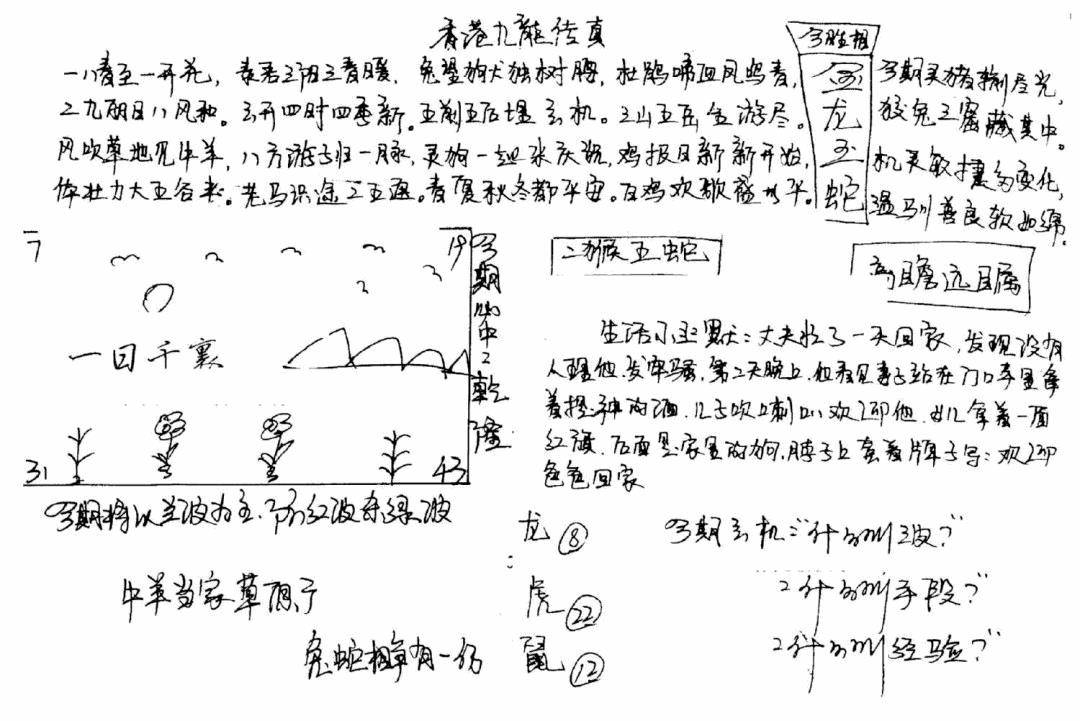 香港九龍传真
今胜相
金龙玉蛇
一八春至一开花，春君三阳三春暖，兔望狗犬独树腰，杜鹃啼血凤鸟春，
二九朝日八风和。玄开四时四季新。五前五后埋玄机。三山五岳全游尽。
风吹草地见牛羊，八方游子归一脉，灵狗一起来庆祝，鸡报日新新开始，
体壮力大五谷丰。老马识途二五通。春夏秋冬都平安。百鸡欢歌盛水平。
今期灵猪捌尽光，
狡兔三窟藏其中。
机灵敏捷多变化，
温驯善良软如绵。
7
19
一日千裏
31
43
今期心中之乾隆
二猴五蛇
高瞻远瞩
生活小幽默：丈夫忙了一天回家，发现没有
人理他，发牢骚，第二天晚上，他看见妻子站在门口手里拿
着提神的酒，儿子吹喇叭欢迎他，女儿拿着一面
红旗，后面是家里的狗，脖子上套着牌子写：欢迎
爸爸回家
今期将以兰波为主，防红波杀绿波
龙 ⑧
今期玄机："什么叫波？"
牛羊当家草原
虎 ㉒
"什么叫手段？"
兔蛇相争有一份
鼠 ⑫
"什么叫经验？"